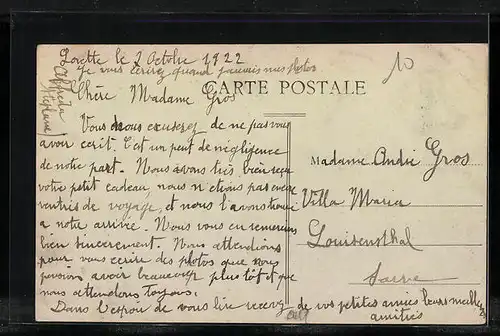 Lorette le 2 Octobre 1922
Je vous écrirez quand j'aurais mes photos
Chère Madame Gros
CARTE POSTALE
10
Vous nous excuserez de ne pas vous
avoir ecrit. C'est un peut de négligence
de notre part. Nous avons très bien reçu
votre petit cadeau, nous n'étions pas encore
rentrés de voyage, et nous l'avons trouvé
a notre arrivé. Nous vous en remercions
bien sincerement. Nous attendions
pour vous ecrire des photos que nous
pensions avoir beaucoup plus tôt et que
nous attendons toujours.
Dans l'espoir de vous lire recevez
de vos petites amies leurs meilleures
amitiés
Madame André Gros
Villa Maria
Louisensthal
Sarre